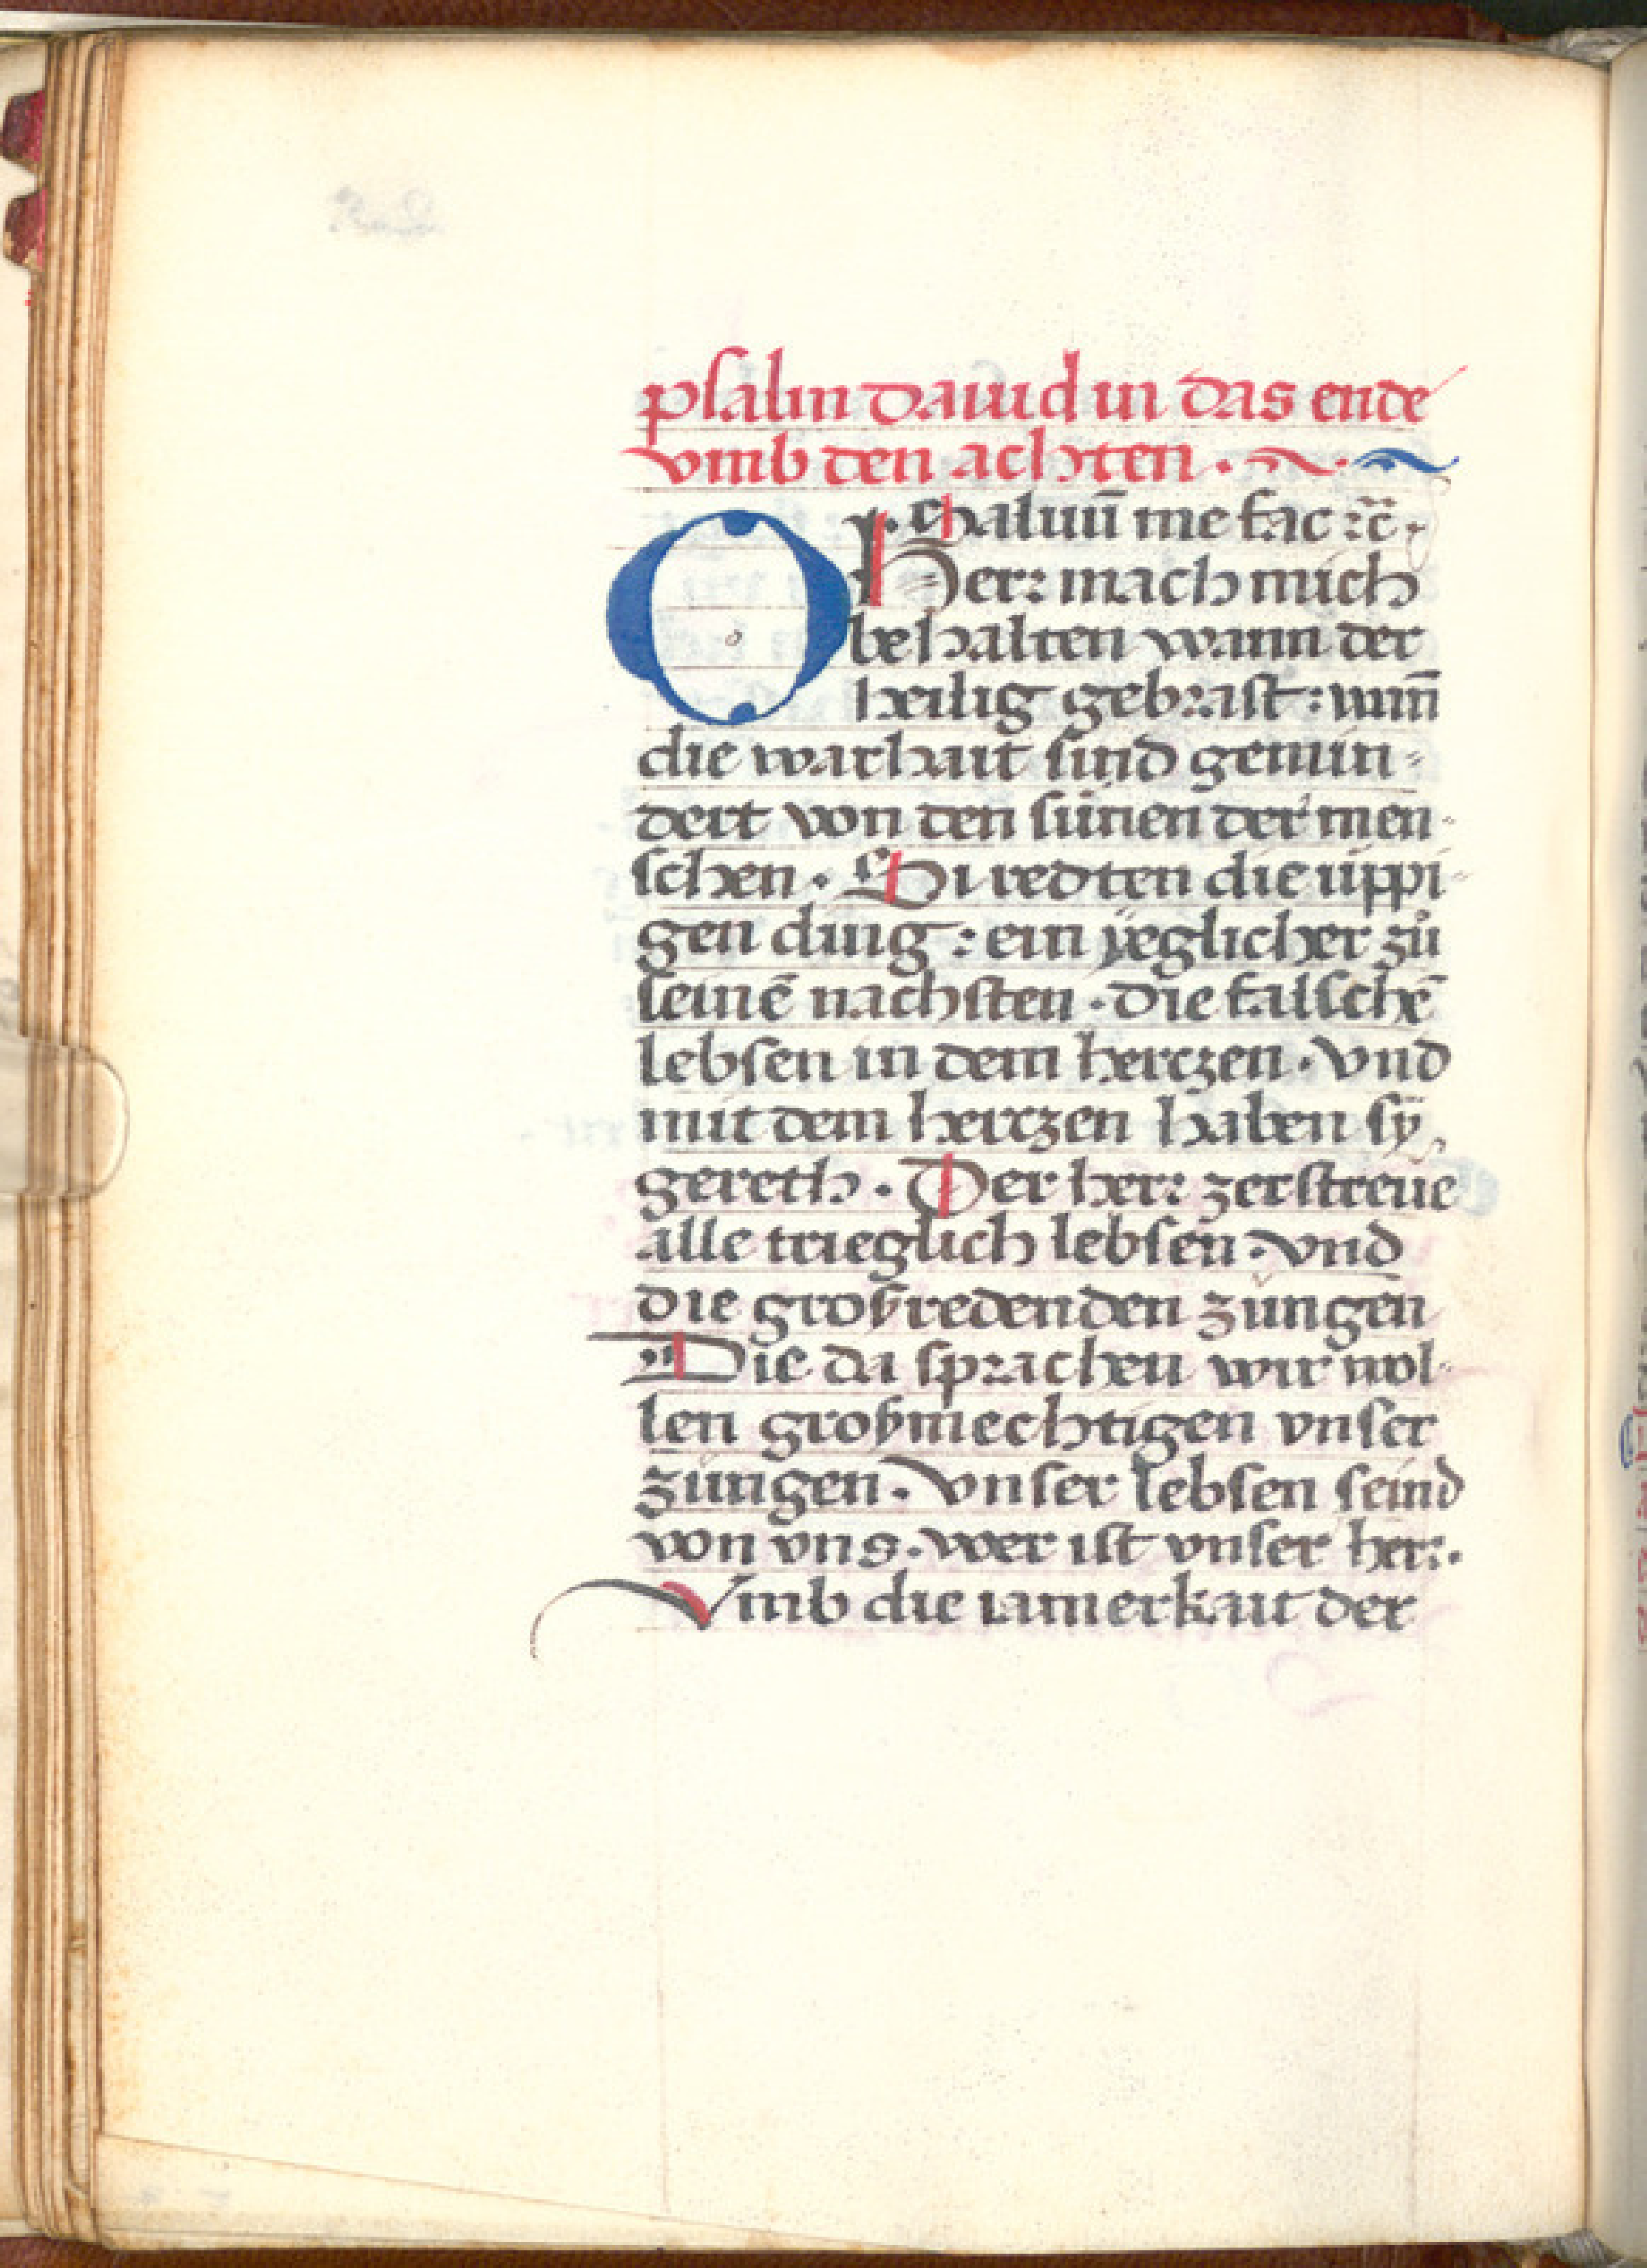 psalm dauid in das ende
vmb den achten .
O Saluū me fac ꝛc̄.
Herꝛ mach mich
behalten wann der
heilig gebꝛast: wañ
die warhait sind gemin-
dert von den sünen der men-
schen . Si redten die üppi-
gen ding: ein ÿeglicher zů
seinē nachsten . die falschē
lebsen in dem herczen . vnd
mit dem herczen haben sÿ
gereth . Der herꝛ zerstreüe
alle trieglich lebsen . vnd
die großredenden zungen
Die da spꝛachen wir wol-
len großmechtigen vnser
zungen . vnser lebsen seind
von vns . wer ist vnser herꝛ .
Vmb die iamerkait der